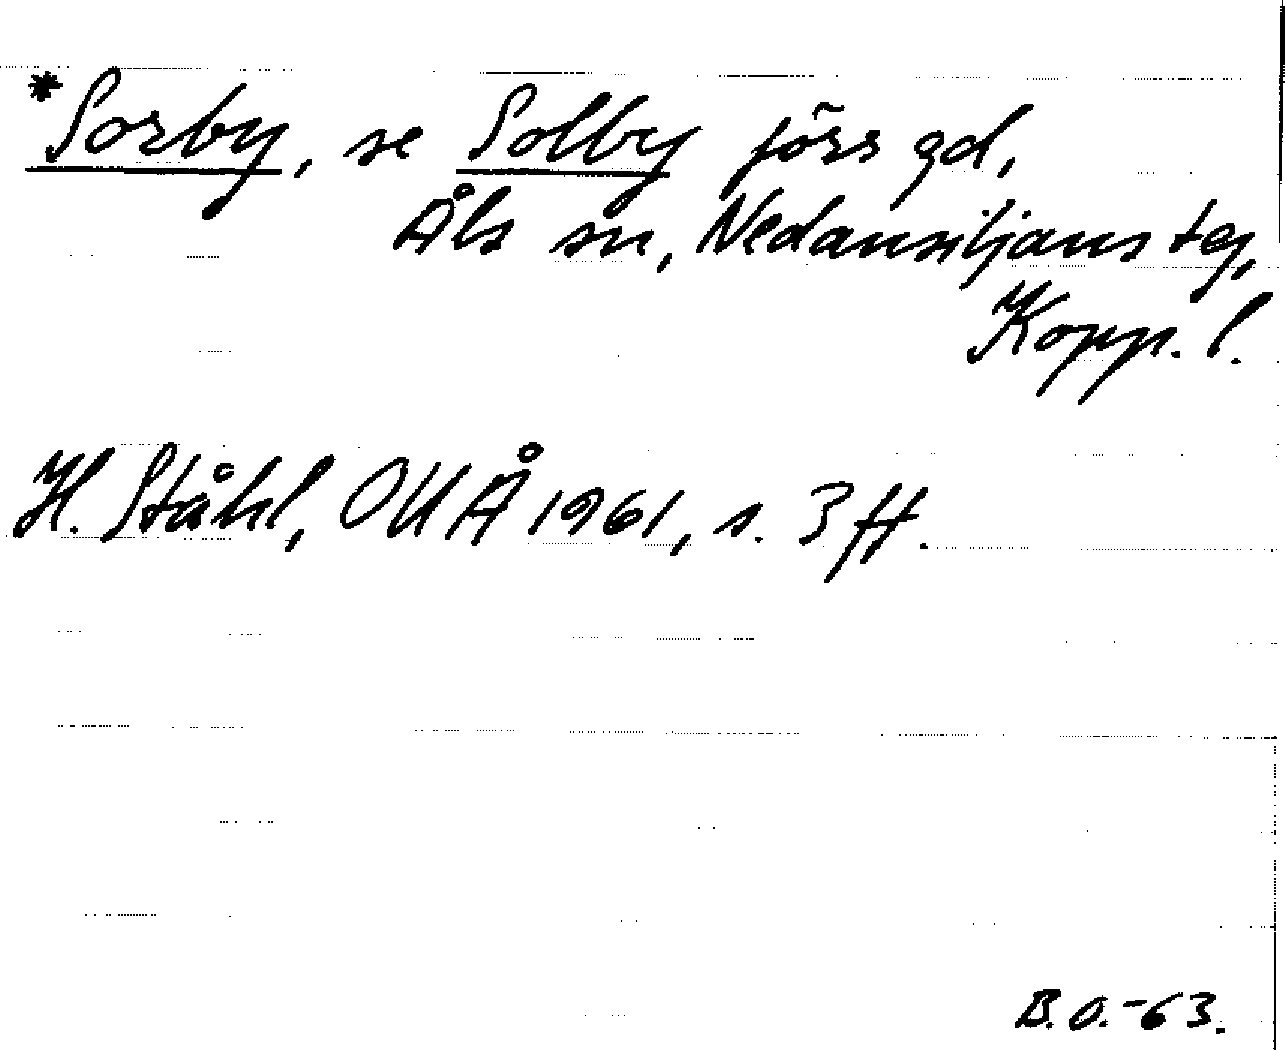 *Sorby, se Solby förs gd,
Åls sn, Nedansiljans tg,
Kopp. l.
H. Ståhl, OUÅ 1961, s. 3 ff.
B.O.-63.